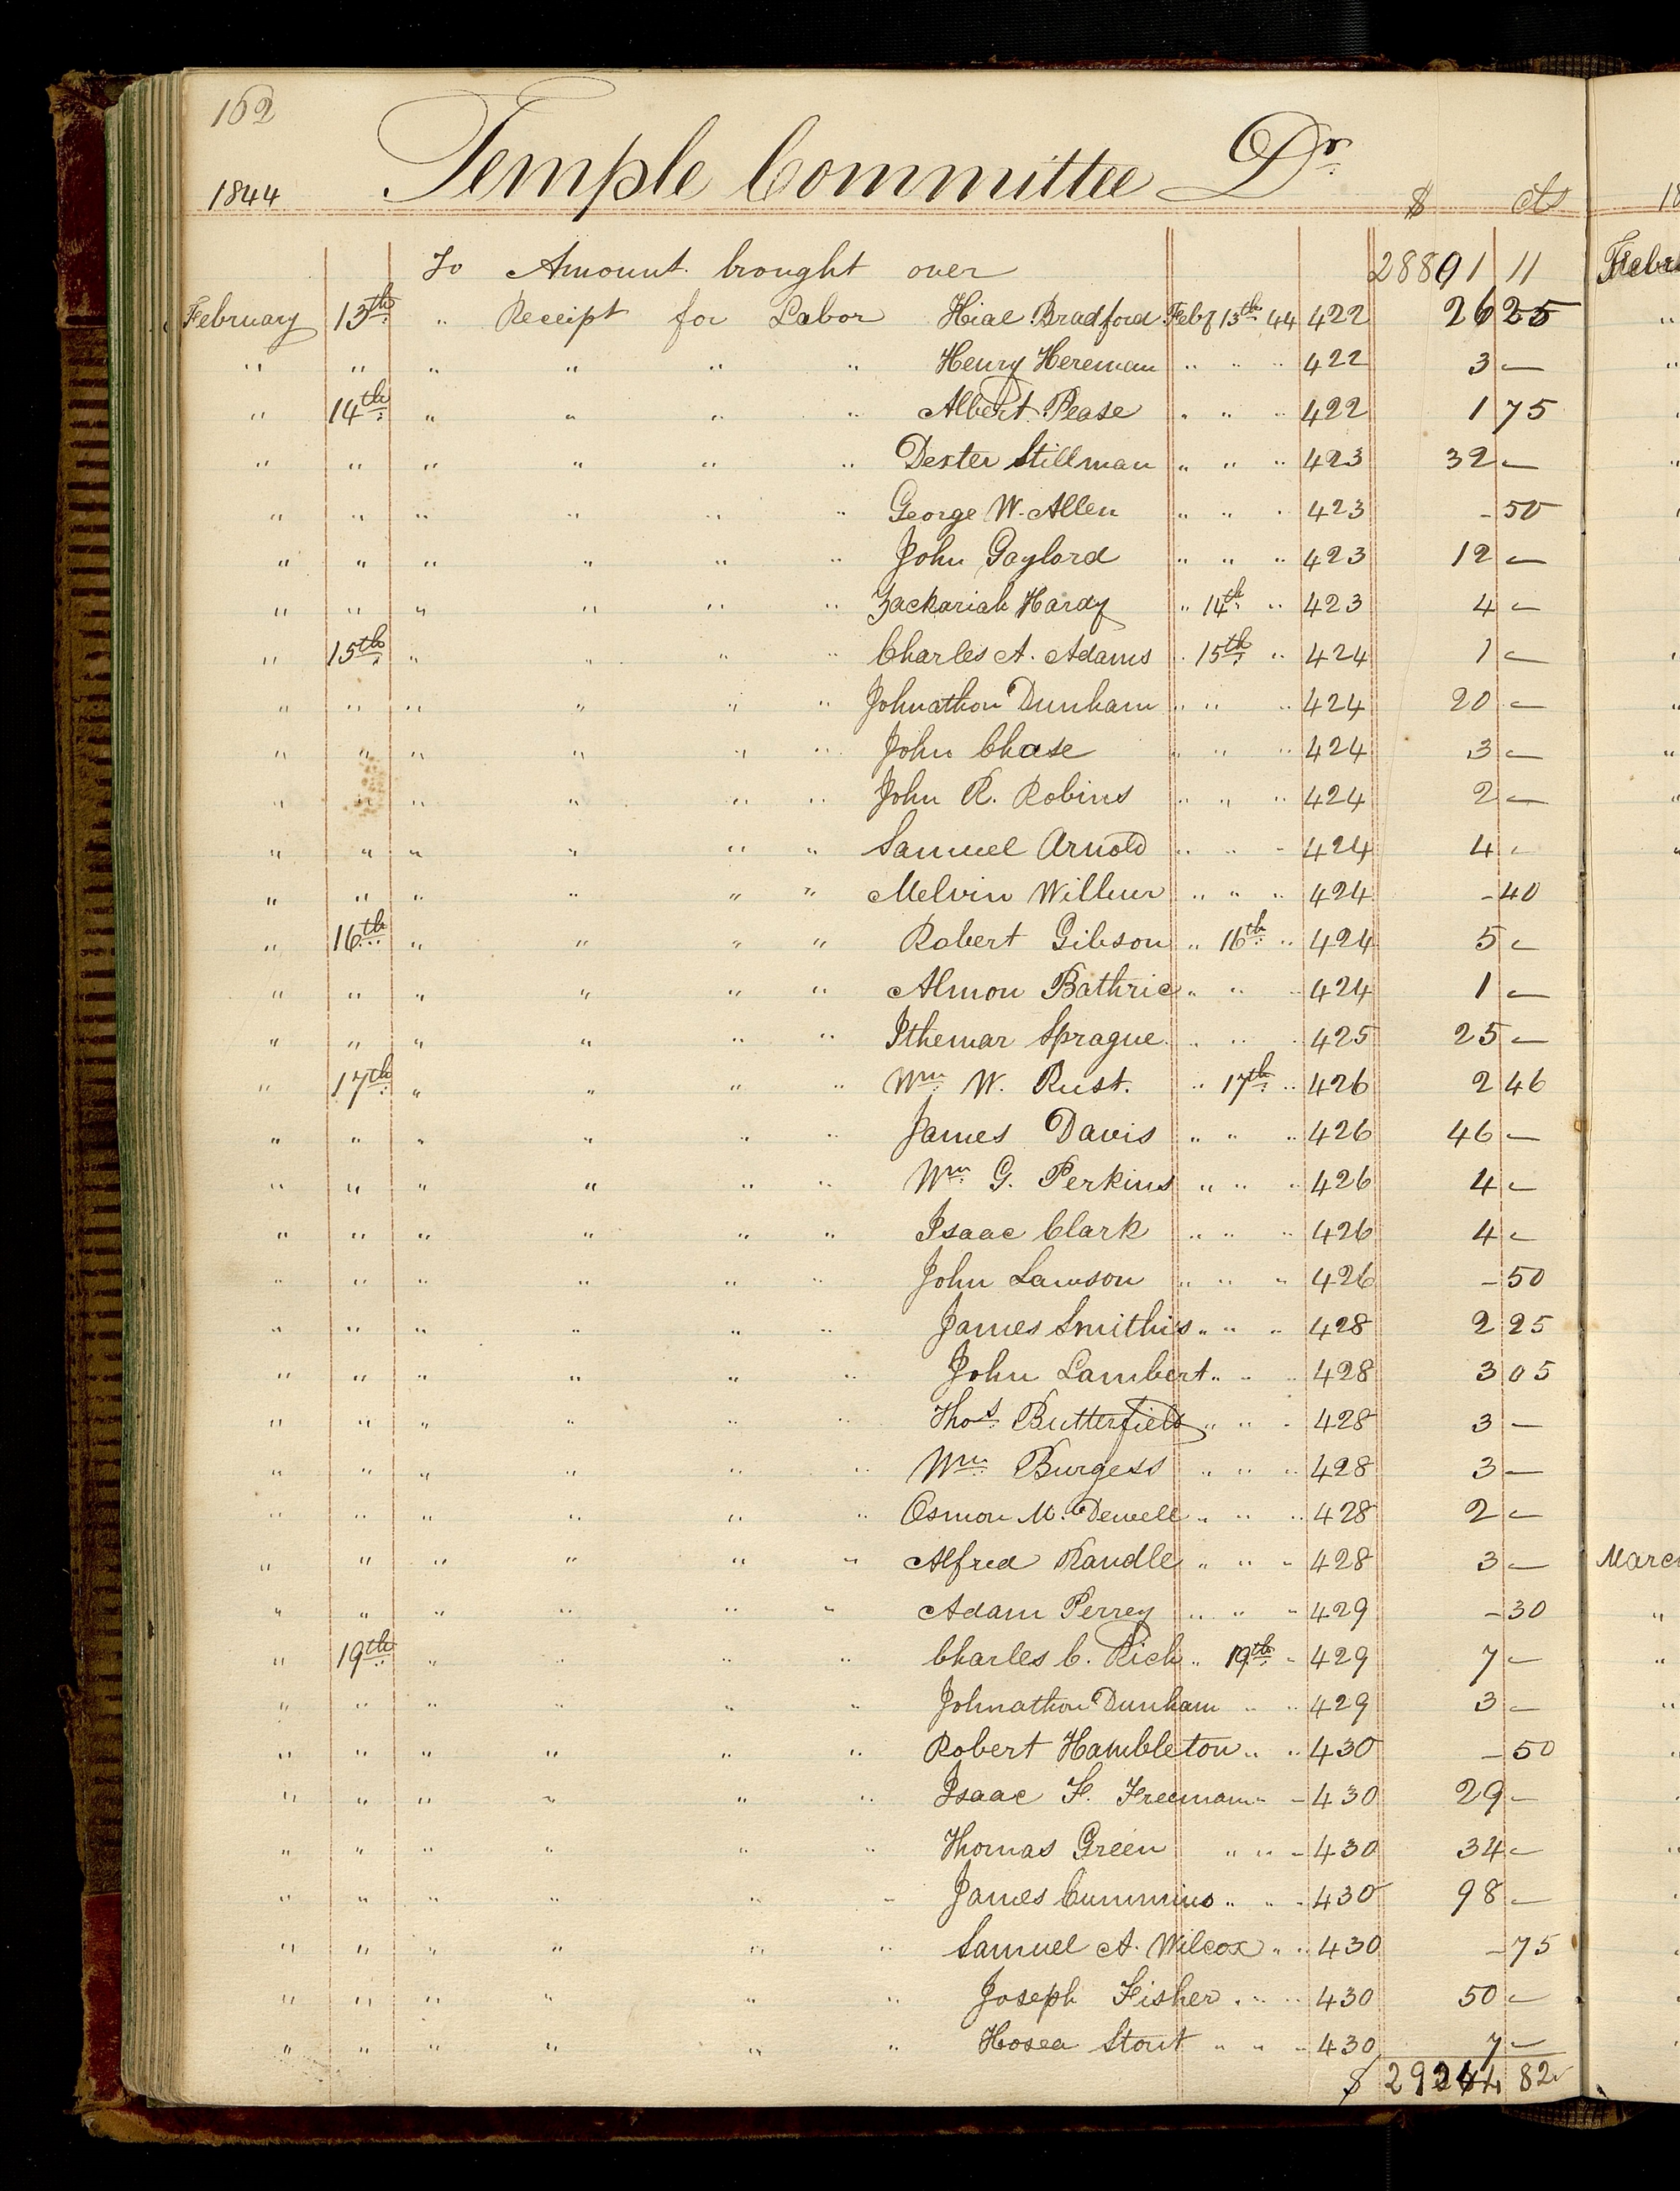 162
Temple Committee Dr.
1844 $ cts
To Amount brought over 28891 11
February 13th " Receipt for Labor Hial Bradford Feby 13th 44 422 26 25
" " " " " " Henry Hereman " " " 422 3 —
" 14th " " " " Albert Pease " " " 422 1 75
" " " " " " Dexter Stillman " " " 423 32 —
" " " " " " George W. Allen " " " 423 - 50
" " " " " " John Gaylord " " " 423 12 —
" " " " " " Zackariah Hardy " 14th " 423 4 —
" 15th " " " " Charles A. Adams " 15th " 424 1 —
" " " " " " Johnathon Dunham " " " 424 20 —
" " " " " " John Chase " " " 424 3 —
" " " " " " John R. Robins " " " 424 2 —
" " " " " " Samuel Arnold " " " 424 4 —
" " " " " " Melvin Wilbur " " " 424 - 40
" 16th " " " " Robert Gibson " 16th " 424 5 —
" " " " " " Almon Bathric " " " 424 1 —
" " " " " " Ithemar Sprague " " " 425 25 —
" 17th " " " " Wm W. Rust. " 17th " 426 2 46
" " " " " " James Davis " " " 426 46 —
" " " " " " Wm G. Perkins " " " 426 4 —
" " " " " " Isaac Clark " " " 426 4 —
" " " " " " John Lawson " " " 426 - 50
" " " " " " James Smithis " " " 428 2 25
" " " " " " John Lambert " " " 428 3 05
" " " " " " Thos Butterfield " " " 428 3 —
" " " " " " Wm Burgess " " " 428 3 —
" " " " " " Osmon M. Dewell " " " 428 2 —
" " " " " " Alfred Randle " " " 428 3 —
" " " " " " Adam Perrey " " " 429 - 30
" 19th " " " " Charles C. Rich " 19th " 429 7 —
" " " " " " Johnathon Dunham " " 429 3 —
" " " " " " Robert Hambleton " " 430 - 50
" " " " " " Isaac F. Freeman " " 430 29 —
" " " " " " Thomas Green " " " 430 34 —
" " " " " " James Cummins " " " 430 98 —
" " " " " " Samuel A. Wilcox " " 430 - 75
" " " " " " Joseph Fisher " " " 430 50 —
" " " " " " Hosea Stout " " " 430 7 —
$ 82